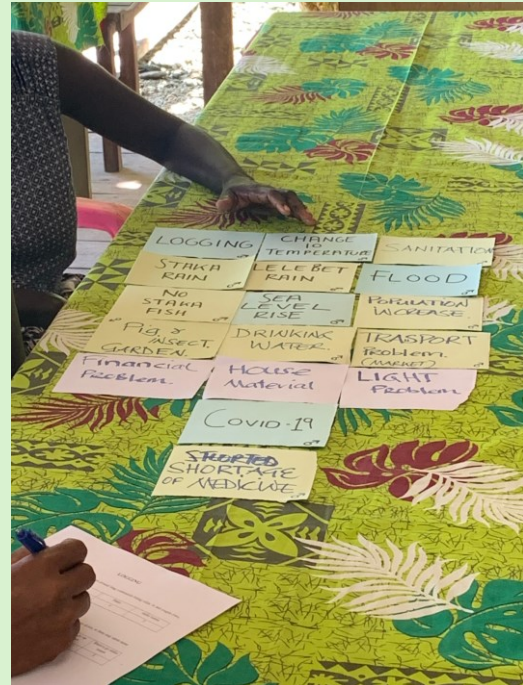 LOGGING
CHANGE
IO
TEMPERATURE
SANITATION
STAKA
RAIN
LELEBET
RAIN
FLOOD
NO
STAKA
FISH
SEA
LEVEL
RISE
POPULATION
INCREASE
Fig, &
INSECT.
GARDEN.
DRINKING
WATER.
TRASPORT
Problem.
(MARKET)
Financial
Problem.
House
Material
LIGHT
Problem
COVID-19
SHORTAGE
OF MEDICINE